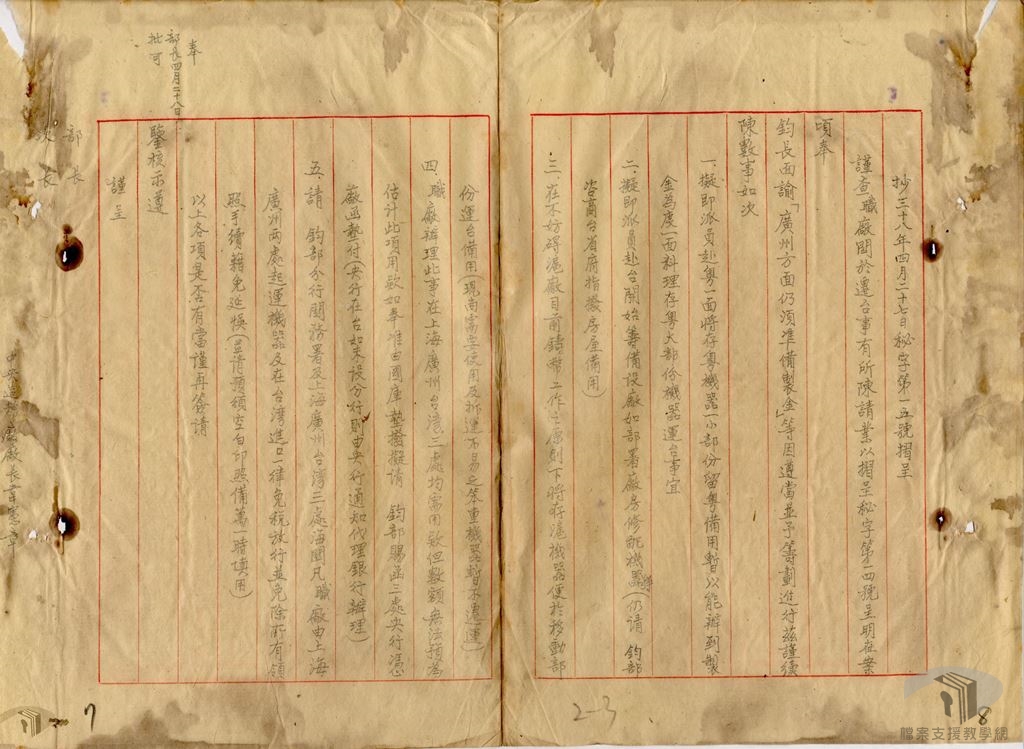 抄三十八年四月二十七日秘字第一五號摺呈
謹查職廠關於遷台事有所陳請業以摺呈秘字第一四號呈明在案
頃奉
鈞長面諭「廣州方面仍須準備製金」等因遵當並予籌劃進行茲謹續
陳數事如次
一、擬即派員赴粵一面將存粵機器一小部份留粵備用暫以能辦到製
金為度一面料理存粵大部份機器運台事宜
二、擬即派員赴台開始籌備設廠如部署廠房修配機器等(仍請 鈞部
咨商台省府指撥房屋備用)
三、在不妨碍滬廠目前鑄幣工作之原則下將存滬機器便於移動部
份運台備用(現尚需要使用及拆運不易之笨重機器暫不遷運)
四、職廠辦理此事在上海廣州台湾三處均需用款但數額無法預為
估計此項用款如奉准由國庫墊撥擬請 鈞部賜函三處央行憑
廠函墊付(央行在台如未設分行則由央行通知代理銀行辦理)
五、請 鈞部分行關務署及上海廣州台湾三處海關凡職廠由上海
廣州兩處起運機器及在台湾進口一律免稅放行並免除所有領
照手續藉免延悞(並請預領空白印照備萬一時填用)
以上各項是否有當謹再簽請
鑒核示遵
謹呈
部長
次長
奉
部長四月二十八日
批可
中央造幣廠廠長韋憲章
7
2-3
8
檔案支援教學網